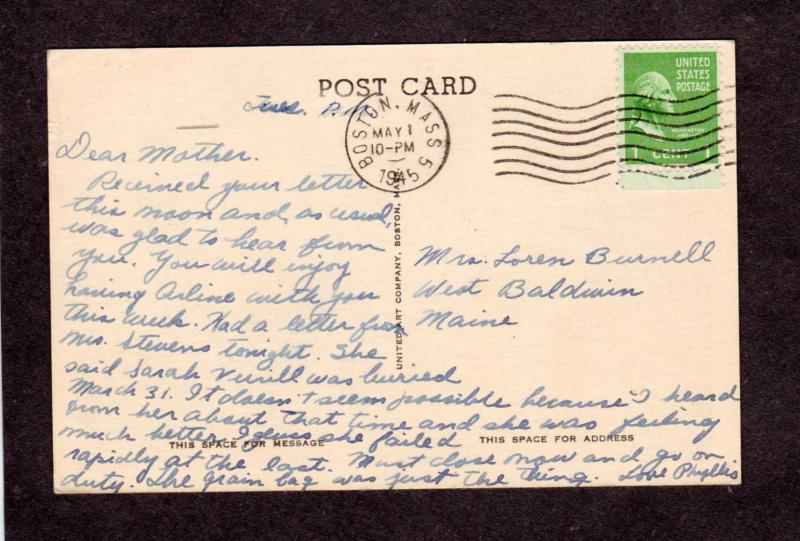 POST CARD
Tues. P.M.
BOSTON, MASS 5
MAY 1
10-PM
1945
UNITED
STATES
POSTAGE
WASHINGTON
1 CENT 1
Dear Mother.
Received your letter
this noon and, as usual,
was glad to hear from
you. You will enjoy
having Arline with you
this week. Had a letter from
Mrs. Stevens tonight. She
said Sarah Verrill was buried
March 31. It doesn't seem possible because I heard
from her about that time and she was feeling
much better. I guess she failed
rapidly at the last. Must close now and go on
duty. The grain bag was just the thing. Love Phyllis
UNITED ART COMPANY, BOSTON, MASS.
Mrs. Loren Burnell
West Baldwin
Maine
THIS SPACE FOR MESSAGE
THIS SPACE FOR ADDRESS